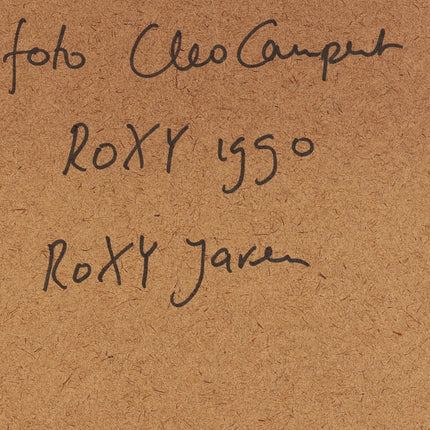 foto Cleo Campert
ROXY 1990
ROXY Jaren